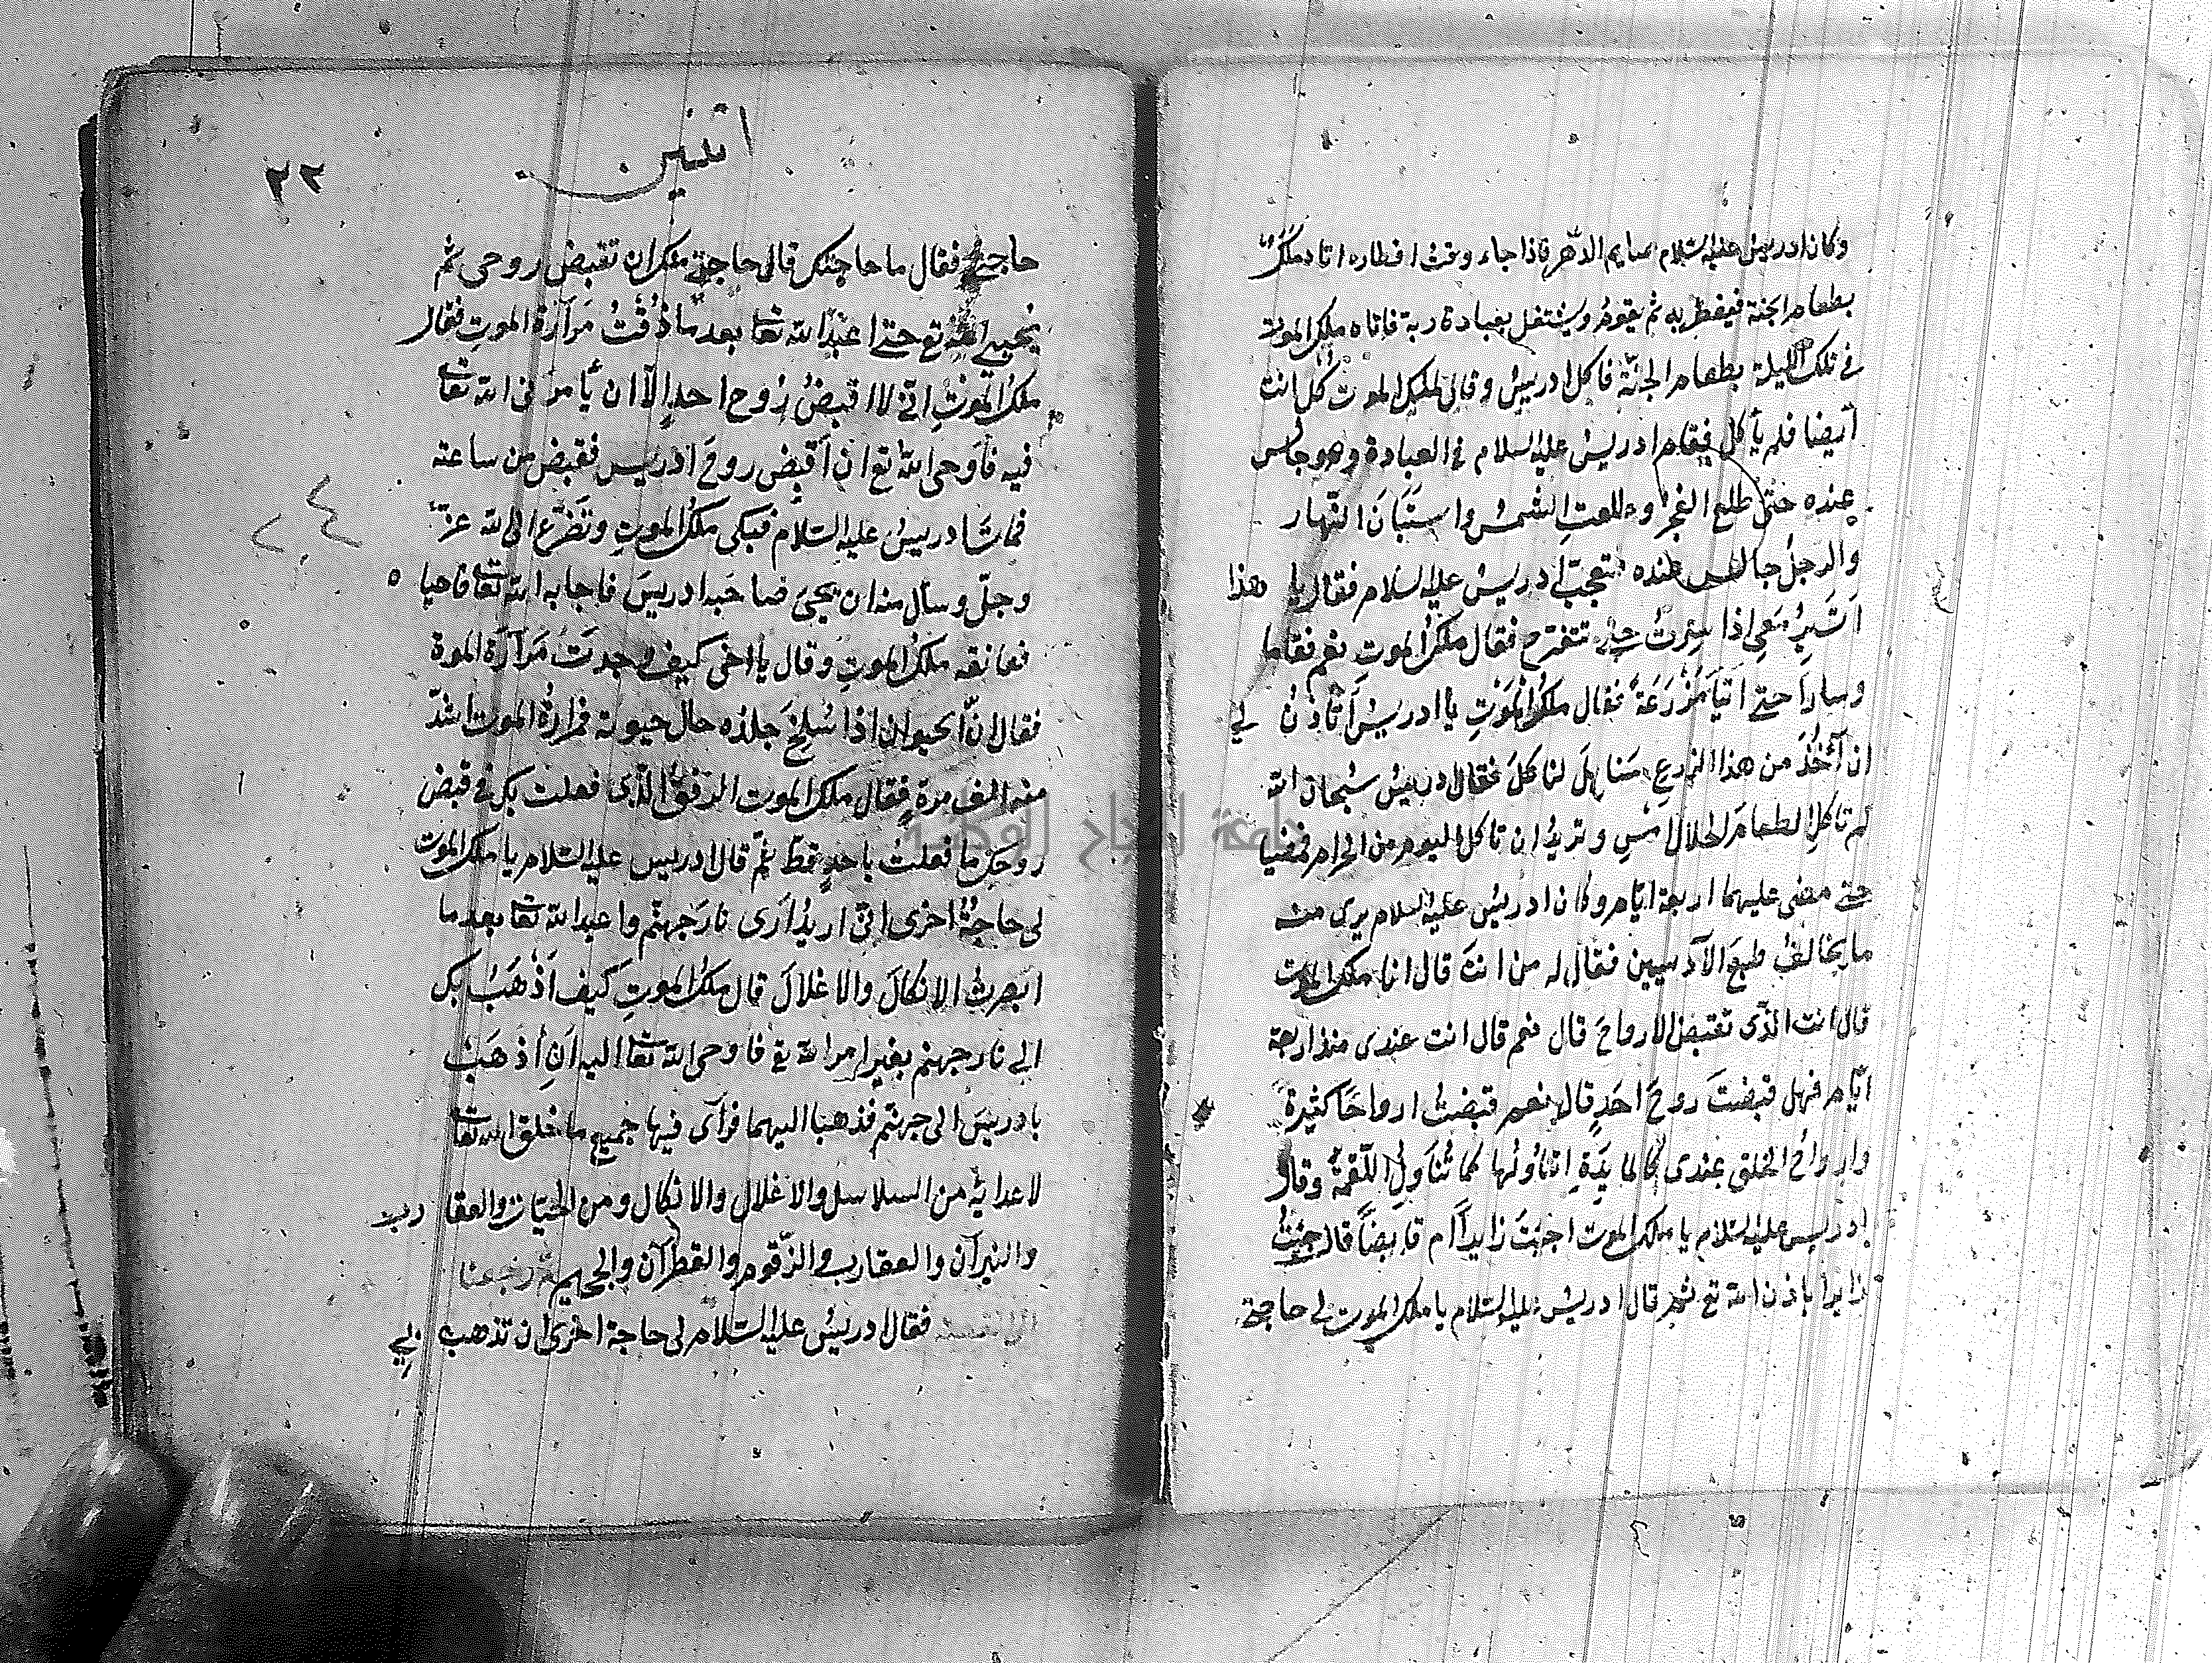 وكان ادريس عليه السلام صايم الدهر فاذا جاء وقت افطاره اتاه ملك
بطعام الجنة فيفطر به ثم يقوم ويشتغل بعبادة ربه فاتاه ملك الموت
في تلك الليلة بطعام الجنّة فاكل ادريس وقال لملك الموت كل انت
أيضا فلم يأكل فقام ادريس عليه السلام في العبادة وهو جالس
عنده حتى طلع الفجر وطلعت الشمس واستبان النهار
والرجل جالس عنده فتعجب ادريس عليه السلام فقال يا هذا
اتسير معي اذا سرت حتى تتفرح فقال ملك الموت نعم فقاما
وسارا حتى اتيا مزرعة فقال ملك الموت يا ادريس أتأذن لي
ان آخذ من هذا الزرع سنابل لنا كل فقال ادريس سبحان الله
لم تاكل الطعام الحلال امس وتريد ان تاكل اليوم من الحرام فمضيا
حتى مضى عليهما اربعة ايام وكان ادريس عليه السلام يرى منه
ما يخالف طبع الآدميين فقال له من انت قال انا ملك الموت
قال انت الذى تقبض الارواح قال نعم قال انت عندى منذ اربعة
ايام فهل قبضت روح احد قال نعم قبضت ارواحا كثيرة
وارواح الخلق عندى كالمايدة اتناولها كما تناول اللقمة وقال
ادريس عليه السلام يا ملك الموت اجئت زايراً ام قابضاً قال جئت
زايرا باذن الله تع ثم قال ادريس عليه السلام يا ملك الموت لي حاجة
اثنين
٢٢
حاجة فقال ما حاجتك قال حاجتى منك ان تقبض روحى ثم
يحييني الله تع حتى اعبد الله تعا بعد ما ذُقتُ مرارة الموت فقال
ملك الموت انى لا اقبض روح احد الا ان يأمرنى الله تعا
فيه فاوحى الله تع ان اقبض روح ادريس فقبض من ساعته
فمات ادريس عليه السلام فبكى ملك الموت وتضرع الى الله عز
وجل وسأل منه ان يحيى صاحبه ادريس فاجابه الله تعا فاحيا ه
فعانقه ملك الموت وقال يا اخى كيف وجدت مرارة الموة
فقال انّ الحيوان اذا سُلخ جلده حال حيوته فمرارة الموت اشدّ
منه الف مرة فقال ملك الموت الرفق الذى فعلت بك في قبض
روحك ما فعلت باحد قط ثم قال ادريس عليه السلام يا ملك الموت
لى حاجة اخرى انى اريد ارى نار جهنم واعبد الله تعا بعد ما
ابصرت الانكال والاغلال قال ملك الموت كيف اذهب بك
الى نار جهنم بغير امر الله تع فاوحى الله تعا اليه ان اذهب
بادريس الى جهنم فذهبا اليهما فرآى فيها جميع ما خلق الله تعا
لاعدائه من السلاسل والاغلال والانكال ومن الحيات والعقا رب
والنيران والعقارب والزقوم والقطران والحميم ثم رجعنا
فقال ادريس عليه السلام لى حاجة اخرى ان تذهب بي
جامعة النجاح الوطنية